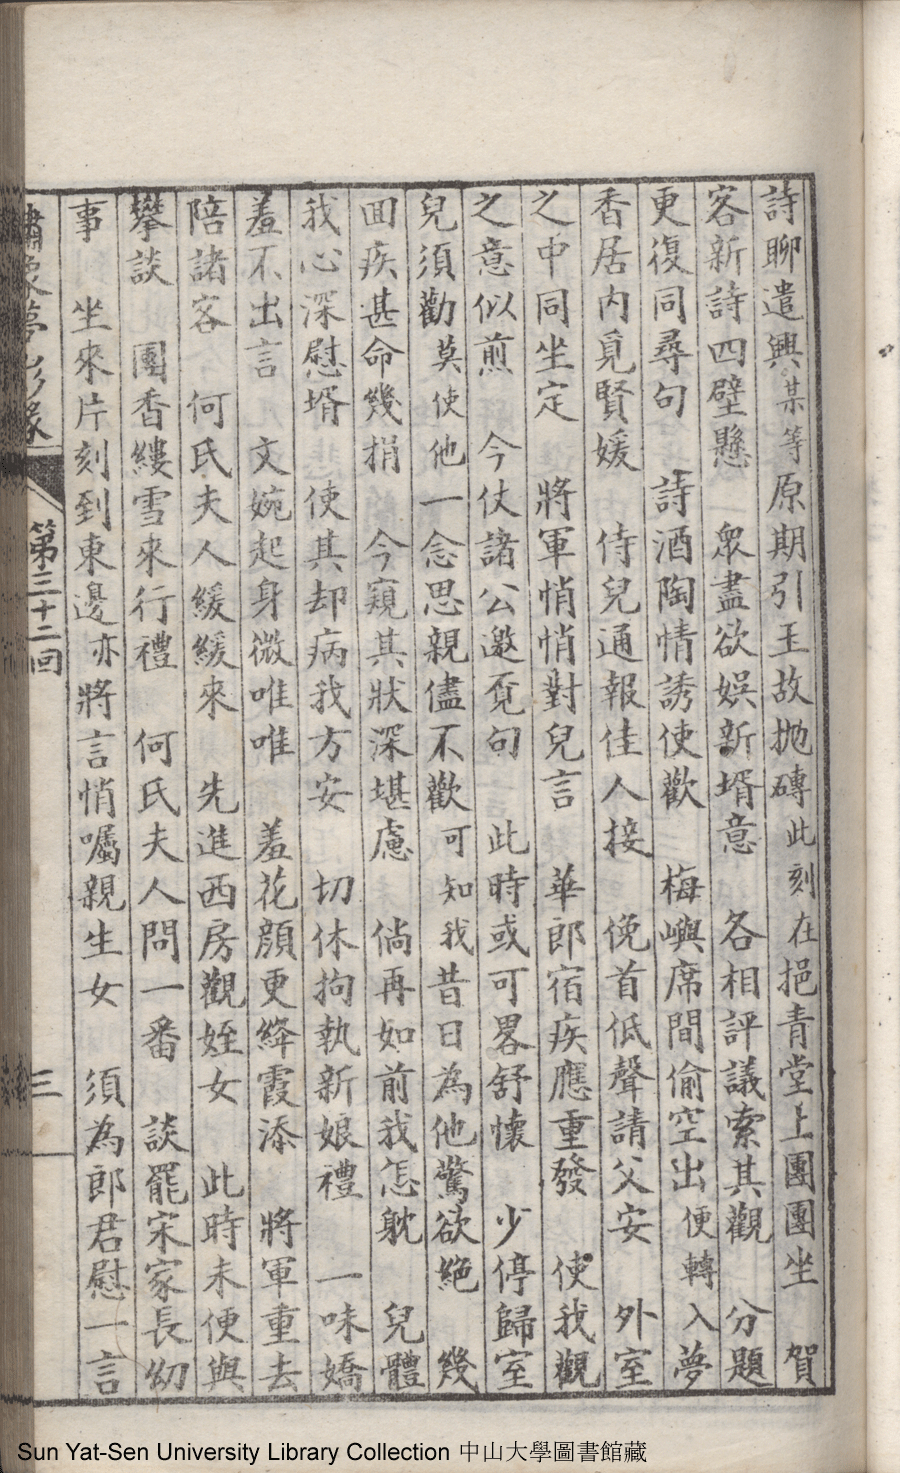 詩聊遣興某等原期引玉故抛磚此刻在挹青堂上團團坐　賀
客新詩四壁懸　衆盡欲娛新壻意　各相評議索其觀　分題
更復同尋句　詩酒陶情誘使歡　梅嶼席間偷空出便轉入夢
香居内覓賢媛　侍兒通報佳人接　俛首低聲請父安　外室
之中同坐定　將軍悄悄對兒言　華郎宿疾應重發　使我觀
之意似煎　今仗諸公邀覓句　此時或可畧舒懷　少停歸室
兒須勸莫使他一念思親儘不歡可知我昔日為他驚欲絶　幾
回疾甚命幾捐　今窺其狀深堪慮　倘再如前我怎躭　兒體
我心深慰壻　使其却病我方安　切休拘執新娘禮　一味嬌
羞不出言　文婉起身微唯唯　羞花顔更絳霞添　將軍重去
陪諸客　何氏夫人緩緩來　先進西房觀姪女　此時未便與
攀談　團香縷雪來行禮　何氏夫人問一番　談罷宋家長幼
事　坐來片刻到東邊亦將言悄囑親生女　須為郎君慰一言
繡像夢影緣　第三十二回　三
Sun Yat-Sen University Library Collection 中山大學圖書館藏